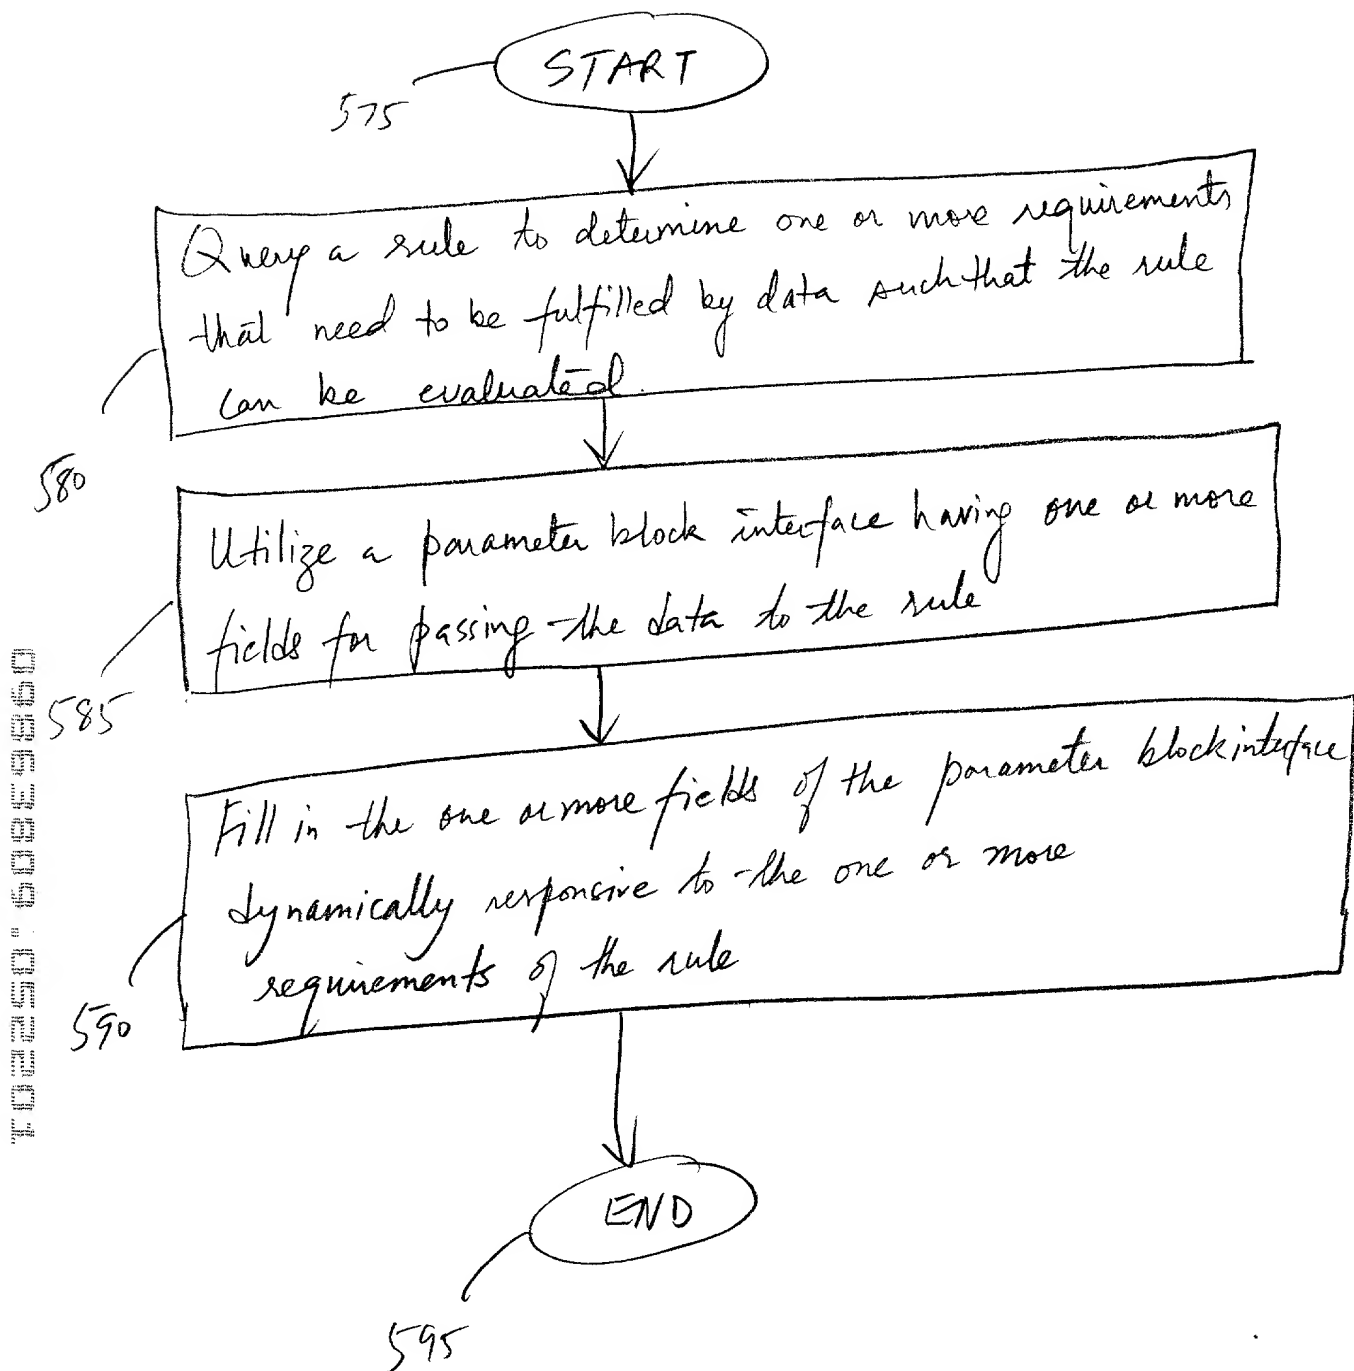 START
575
Query a rule to determine one or more requirements
that need to be fulfilled by data such that the rule
can be evaluated.
580
Utilize a parameter block interface having one or more
fields for passing the data to the rule
585
Fill in the one or more fields of the parameter block interface
dynamically responsive to the one or more
requirements of the rule
590
END
595
09863809.052201